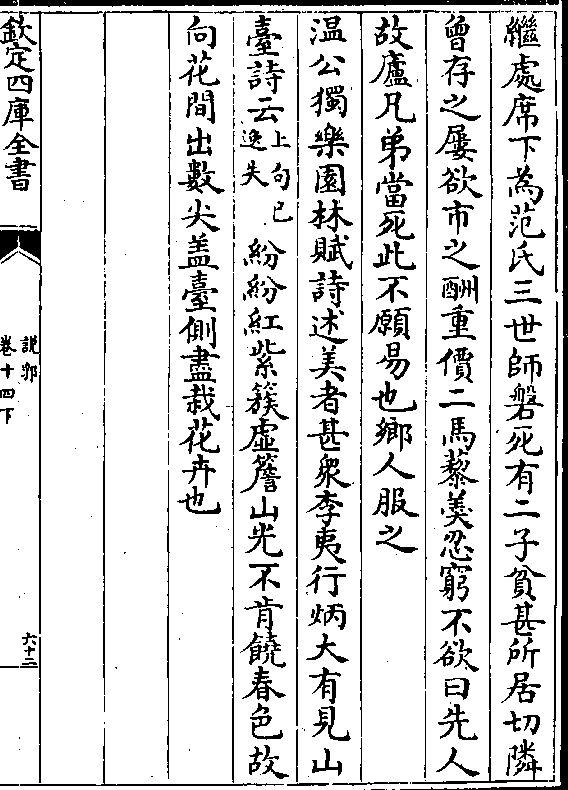 繼處席下為范氏三世師磐死有二子貧甚所居切隣
曾存之屢欲市之酬重價二馬藜羮忍窮不欲曰先人
故廬凡弟當死此不願易也鄉人服之
温公獨樂園林賦詩述美者甚衆李夷行炳大有見山
臺詩云上句已逸失紛紛紅紫簇虚簷山光不肯饒春色故
向花間出數尖盖臺側盡栽花卉也
欽定四庫全書
説郛
卷十四下
六十二